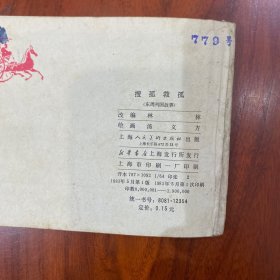 779号
搜孤救孤
(东周列国故事)
改编 林林
绘画 汤义方
上海人民美术出版社出版
上海长乐路672弄33号
新华书店上海发行所发行
上海市印刷一厂印刷
开本 787×1092 1/64 印张 2
1983年5月第1版 1983年5月第1次印刷
印数 0,000,001—2,500,000
统一书号：8081·12354
定价：0.15元